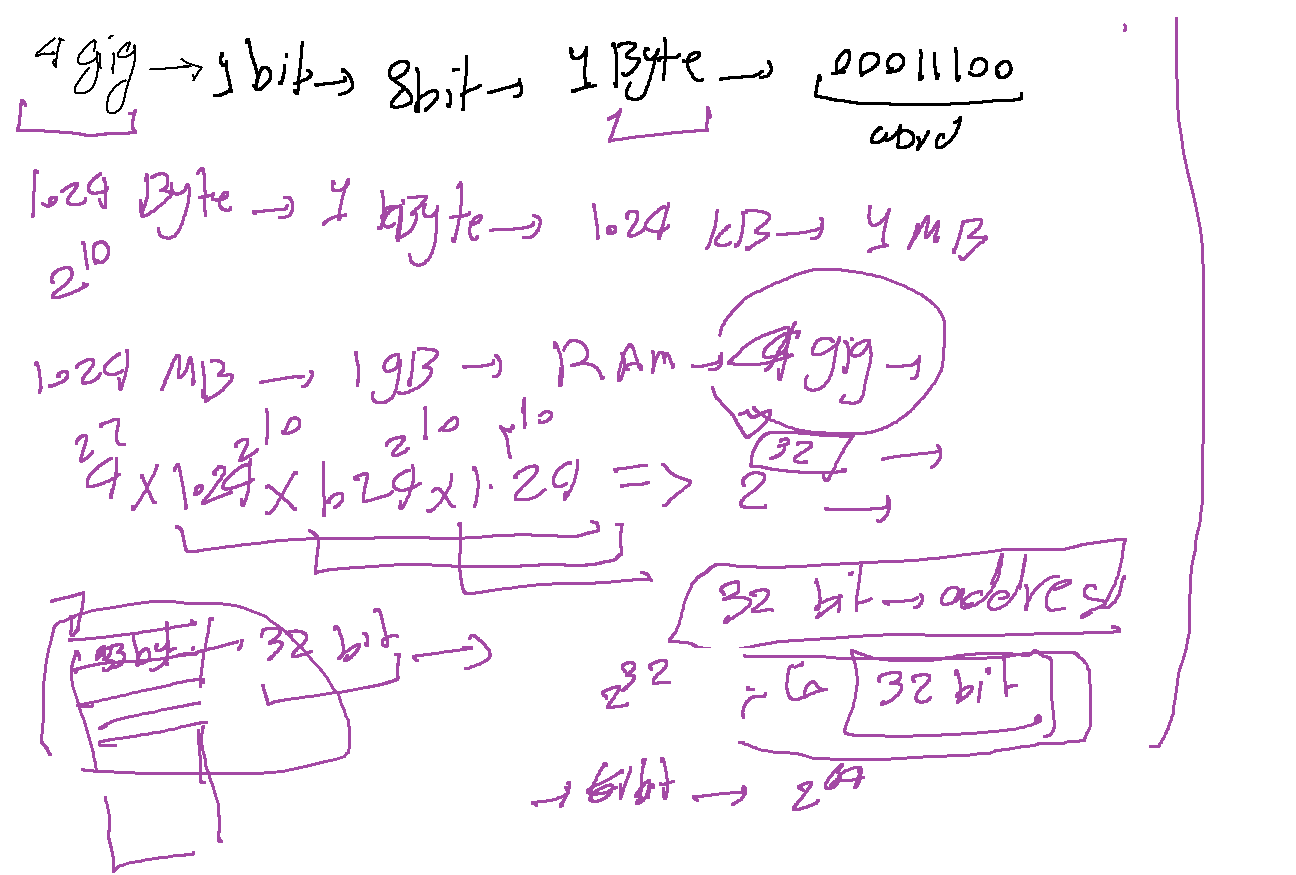 4 gig → 1 bit → 8bit → 1 Byte → 00011100
1024 Byte → 1 kByte → 1024 kB → 1 MB
2^10
1024 MB → 1 gB → RAM → 4 gig →
2^2 2^10 2^10 2^10
4 × 1024 × 1024 × 1024 => 2^32 →
32 bit → address
32 bit →
2^32 32 bit
→ 64bit → 2^64